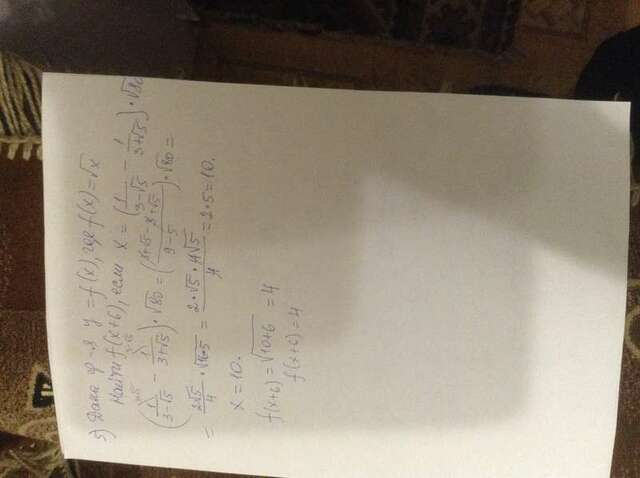 5) Дана ф-я y = f(x), где f(x) = √x
Найти f(x+6), если x = (1/(3-√5) - 1/(3+√5)) · √80
(1/(3-√5) - 1/(3+√5)) · √80 = ((3+√5-3+√5)/(9-5)) · √80 =
= 2√5/4 · √16·5 = (2·√5·4√5)/4 = 2·5 = 10.
x = 10.
f(x+6) = √10+6 = 4
f(x+6) = 4